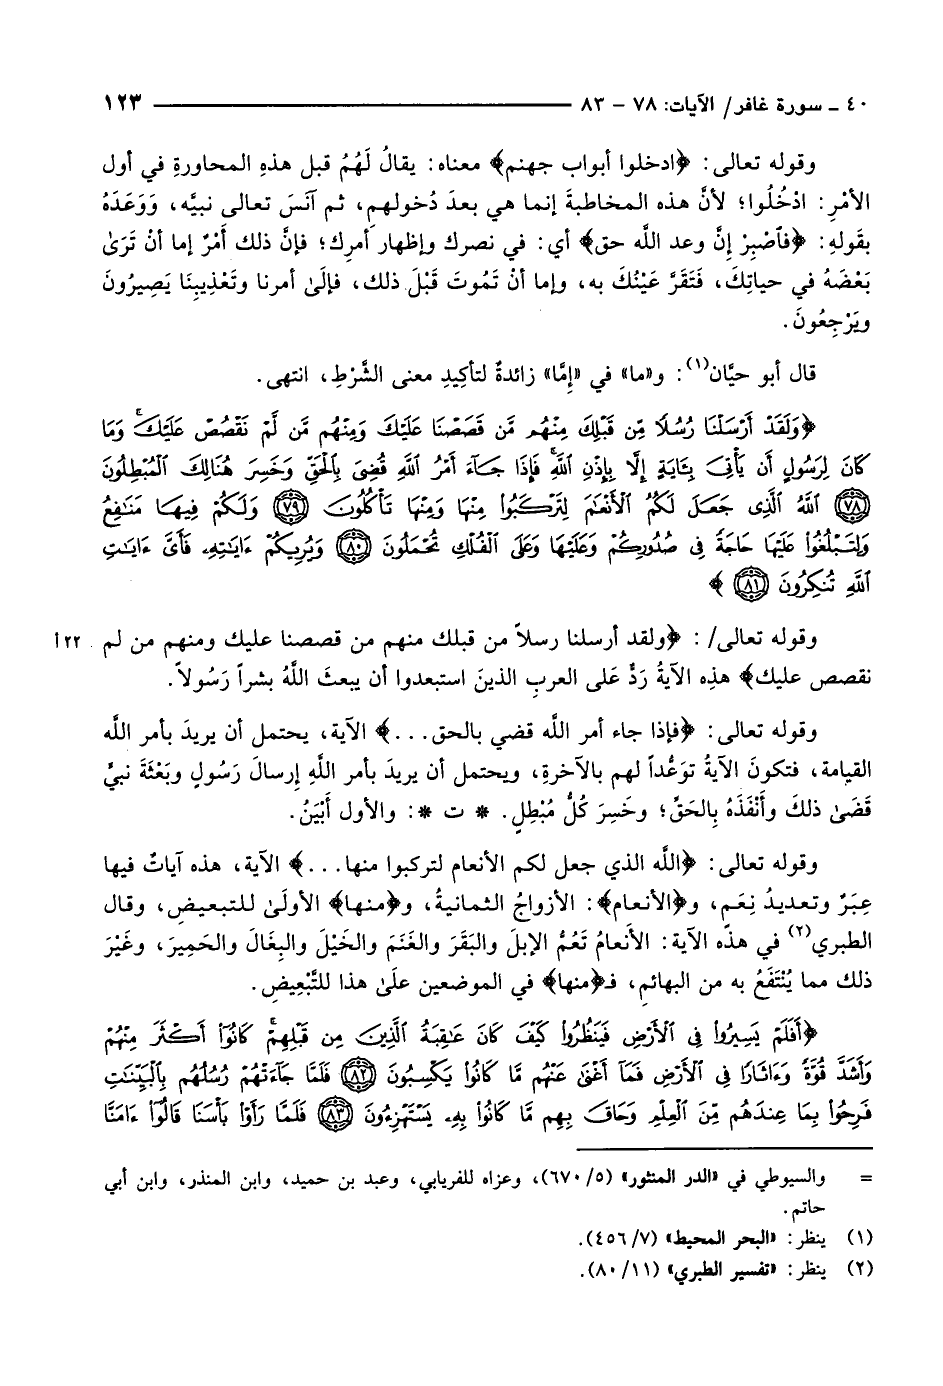 ٤٠ ـ سورة غافر/ الآيات: ٧٨ - ٨٣ ١٢٣
وقوله تعالى: ﴿ادخلوا أبواب جهنم﴾ معناه: يقالُ لَهُمُ قبل هذهِ المحاورةِ في أول
الأمْرِ: ادْخُلُوا؛ لأنَّ هذه المخاطبةَ إنما هي بعدَ دُخولهمِ، ثم آنَسَ تعالى نبيَّه، وَوَعَدَهُ
بقَولهِ: ﴿فَٱصْبِرْ إِنَّ وعد اللَّه حق﴾ أي: في نصرك وإظهارِ أمرِك؛ فإنَّ ذلك أَمْرٌ إما أنْ تَرَىٰ
بَعْضَهُ في حياتِكَ، فَتَقَرَّ عَيْنُكَ به، وإما أن تَمُوتَ قَبْلَ ذلك، فإلَىٰ أمرنا وتَعْذِيبِنَا يَصِيرُونَ
ويَرْجِعُونَ.
قال أبو حيَّان(١): و«ما» في «إِمَّا» زائدةٌ لتأكِيدِ معنى الشَّرْطِ، انتهى.
﴿وَلَقَدْ أَرْسَلْنَا رُسُلًا مِّن قَبْلِكَ مِنْهُم مَّن قَصَصْنَا عَلَيْكَ وَمِنْهُم مَّن لَّمْ نَقْصُصْ عَلَيْكَ ۗ وَمَا
كَانَ لِرَسُولٍ أَن يَأْتِىَ بِـَٔايَةٍ إِلَّا بِإِذْنِ ٱللَّهِ ۚ فَإِذَا جَآءَ أَمْرُ ٱللَّهِ قُضِىَ بِٱلْحَقِّ وَخَسِرَ هُنَالِكَ ٱلْمُبْطِلُونَ
﴿٧٨﴾ ٱللَّهُ ٱلَّذِى جَعَلَ لَكُمُ ٱلْأَنْعَٰمَ لِتَرْكَبُوا۟ مِنْهَا وَمِنْهَا تَأْكُلُونَ ﴿٧٩﴾ وَلَكُمْ فِيهَا مَنَٰفِعُ
وَلِتَبْلُغُوا۟ عَلَيْهَا حَاجَةً فِى صُدُورِكُمْ وَعَلَيْهَا وَعَلَى ٱلْفُلْكِ تُحْمَلُونَ ﴿٨٠﴾ وَيُرِيكُمْ ءَايَٰتِهِۦ فَأَىَّ ءَايَٰتِ
ٱللَّهِ تُنكِرُونَ ﴿٨١﴾ ﴾
وقوله تعالى/: ﴿ولقد أرسلنا رسلاً من قبلك منهم من قصصنا عليك ومنهم من لم ٢٢ أ
نقصص عليك﴾ هذِه الآيةُ رَدٌّ عَلى العربِ الذينَ استبعدوا أن يبعثَ اللَّهُ بشراً رَسُولاً.
وقوله تعالى: ﴿فإذا جاء أمر اللَّه قضي بالحق...﴾ الآية، يحتمل أن يريدَ بأمر اللَّه
القيامة، فتكونَ الآيةُ توعُّداً لهم بالآخرةِ، ويحتمل أن يريدَ بأمر اللَّهِ إرسالَ رَسُولٍ وبَعْثَةَ نبيٍّ
قَضَىٰ ذلكَ وأَنْفَذَهُ بِالحَقِّ؛ وخَسِرَ كُلُّ مُبْطِلٍ. * ت *: والأول أَبْيَنُ.
وقوله تعالى: ﴿اللَّه الذي جعل لكم الأنعام لتركبوا منها...﴾ الآية، هذه آياتٌ فيها
عِبَرٌ وتعديدُ نِعَمٍ، و﴿الأنعام﴾: الأزواجُ الثمانيةُ، و﴿منها﴾ الأولَىٰ للتبعيضِ، وقال
الطبري(٢) في هذه الآية: الأنعامُ تَعُمُّ الإبلَ والبَقَرَ والغَنَمَ والخَيْلَ والبِغَالَ والحَمِيرَ، وغَيْرَ
ذلك مما يُنْتَفَعُ به من البهائم، فـ﴿منها﴾ في الموضعين علَىٰ هذا للتَّبْعِيضِ.
﴿أَفَلَمْ يَسِيرُوا۟ فِى ٱلْأَرْضِ فَيَنظُرُوا۟ كَيْفَ كَانَ عَٰقِبَةُ ٱلَّذِينَ مِن قَبْلِهِمْ ۚ كَانُوٓا۟ أَكْثَرَ مِنْهُمْ
وَأَشَدَّ قُوَّةً وَءَاثَارًا فِى ٱلْأَرْضِ فَمَآ أَغْنَىٰ عَنْهُم مَّا كَانُوا۟ يَكْسِبُونَ ﴿٨٢﴾ فَلَمَّا جَآءَتْهُمْ رُسُلُهُم بِٱلْبَيِّنَٰتِ
فَرِحُوا۟ بِمَا عِندَهُم مِّنَ ٱلْعِلْمِ وَحَاقَ بِهِم مَّا كَانُوا۟ بِهِۦ يَسْتَهْزِءُونَ ﴿٨٣﴾ فَلَمَّا رَأَوْا۟ بَأْسَنَا قَالُوٓا۟ ءَامَنَّا
= والسيوطي في «الدر المنثور» (٥/ ٦٧٠)، وعزاه للفريابي، وعبد بن حميد، وابن المنذر، وابن أبي
حاتم.
(١) ينظر: «البحر المحيط» (٧/ ٤٥٦).
(٢) ينظر: «تفسير الطبري» (١١/ ٨٠).